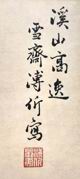 溪山高逸
雪齋溥伒寫